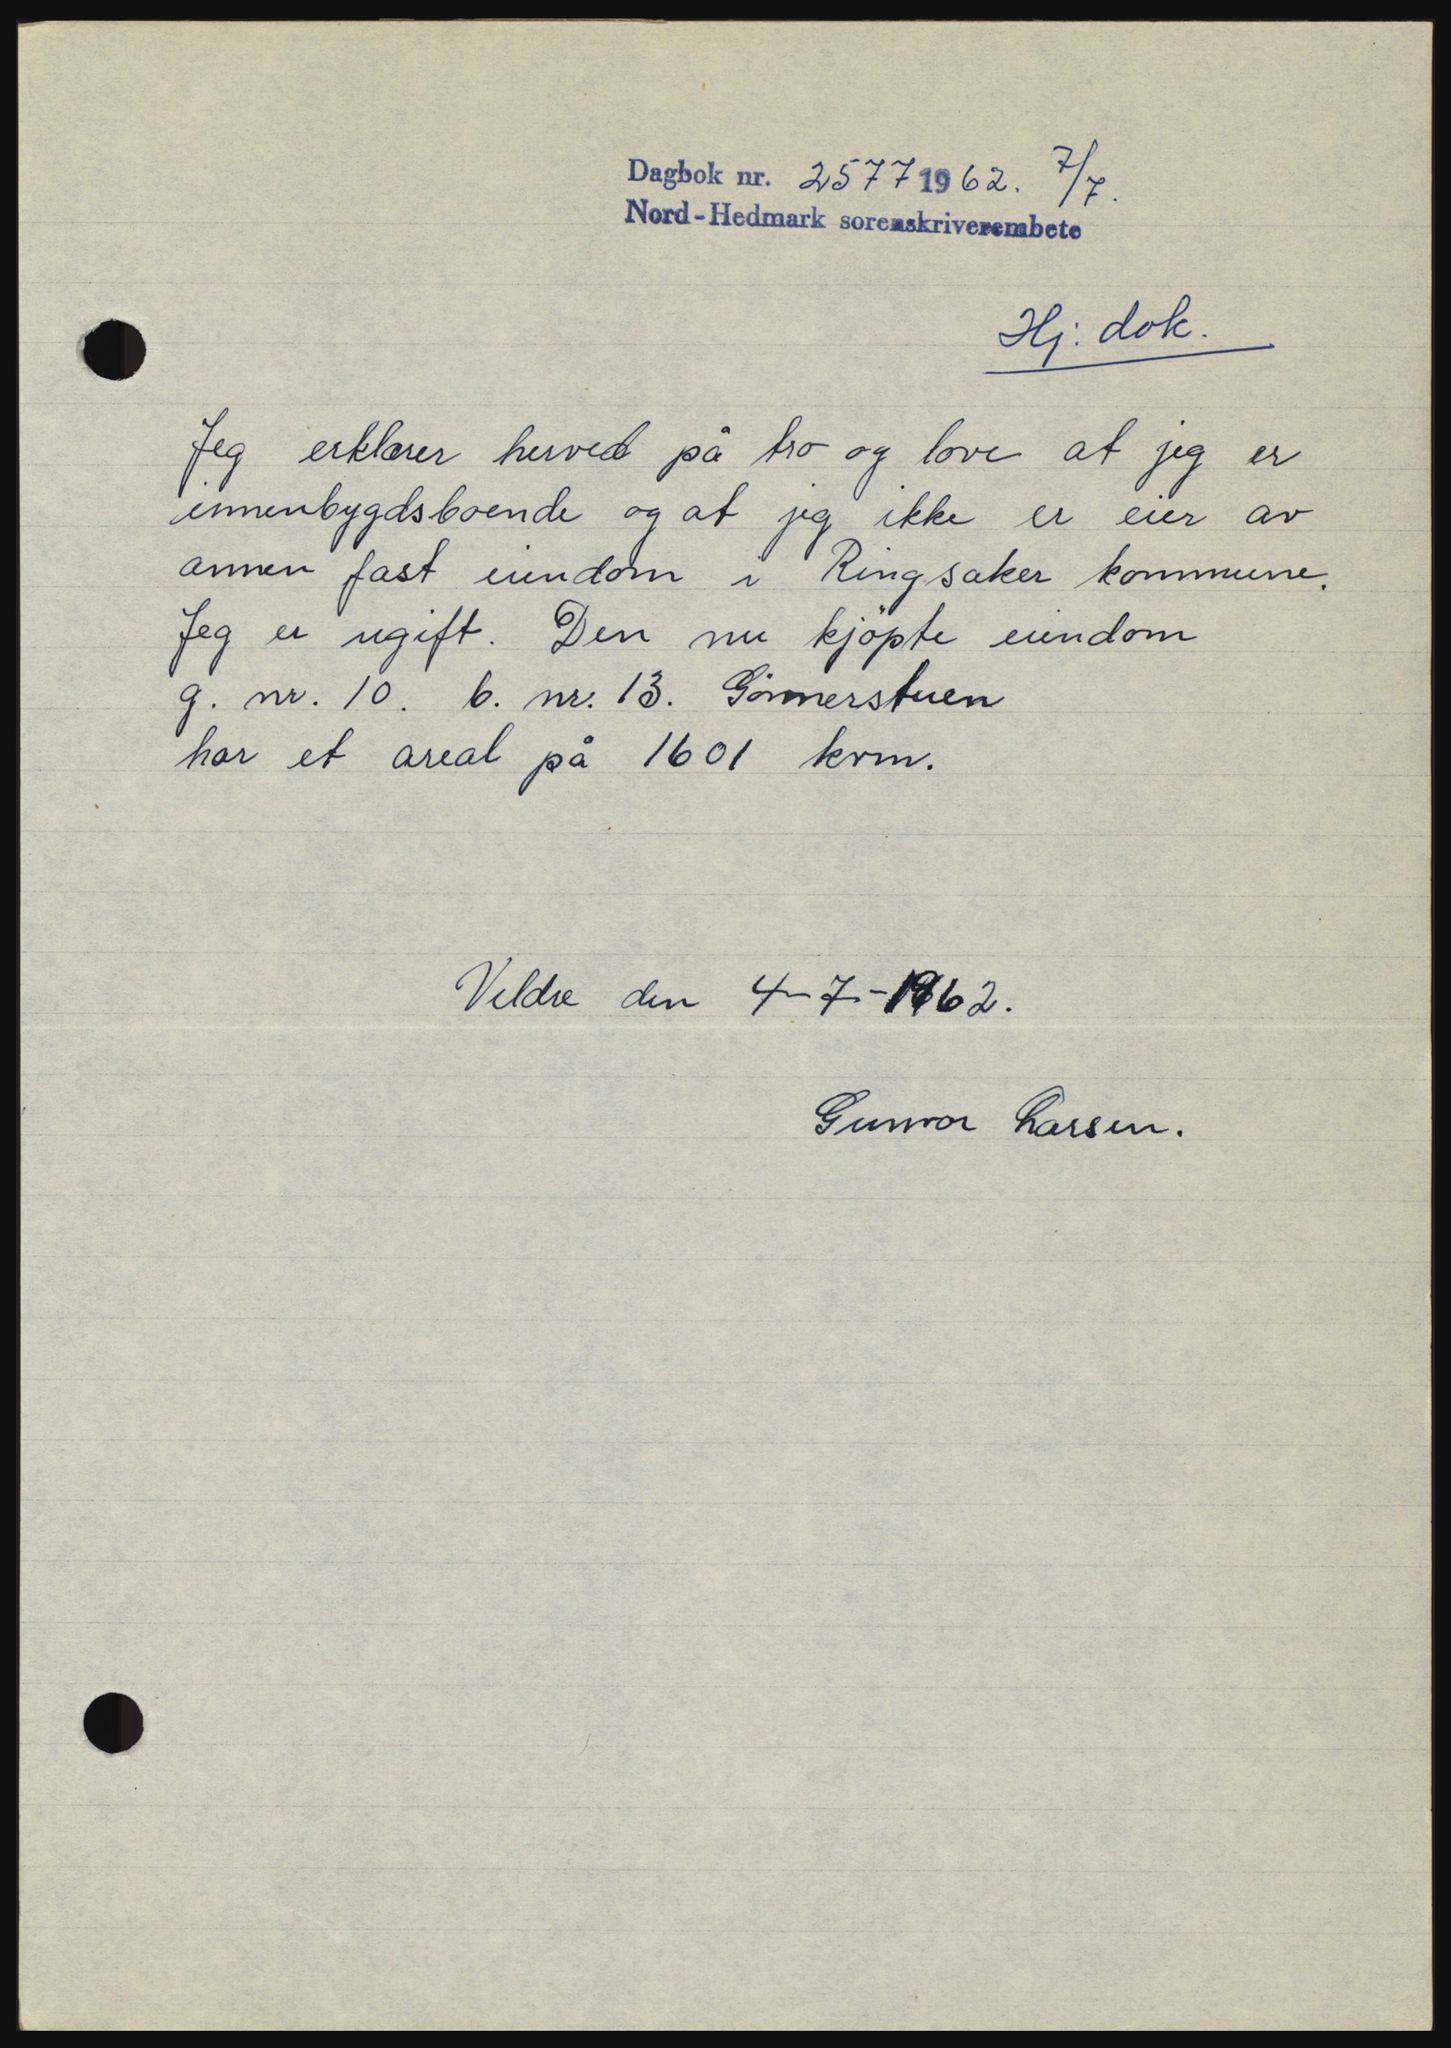 Dagbok nr. 2577 1962. 7/7.
Nord-Hedmark sorenskriverembete
Hj: dok.
Jeg erklærer herved på tro og love at jeg er
innenbygdsboende og at jeg ikke er eier av
annen fast eiendom i Ringsaker kommune.
Jeg er ugift. Den nu kjöpte eiendom
g. nr. 10. b. nr. 13. Gönnerstuen
har et areal på 1601 kvm.
Veldre den 4-7-1962.
Gunvor Larsen.